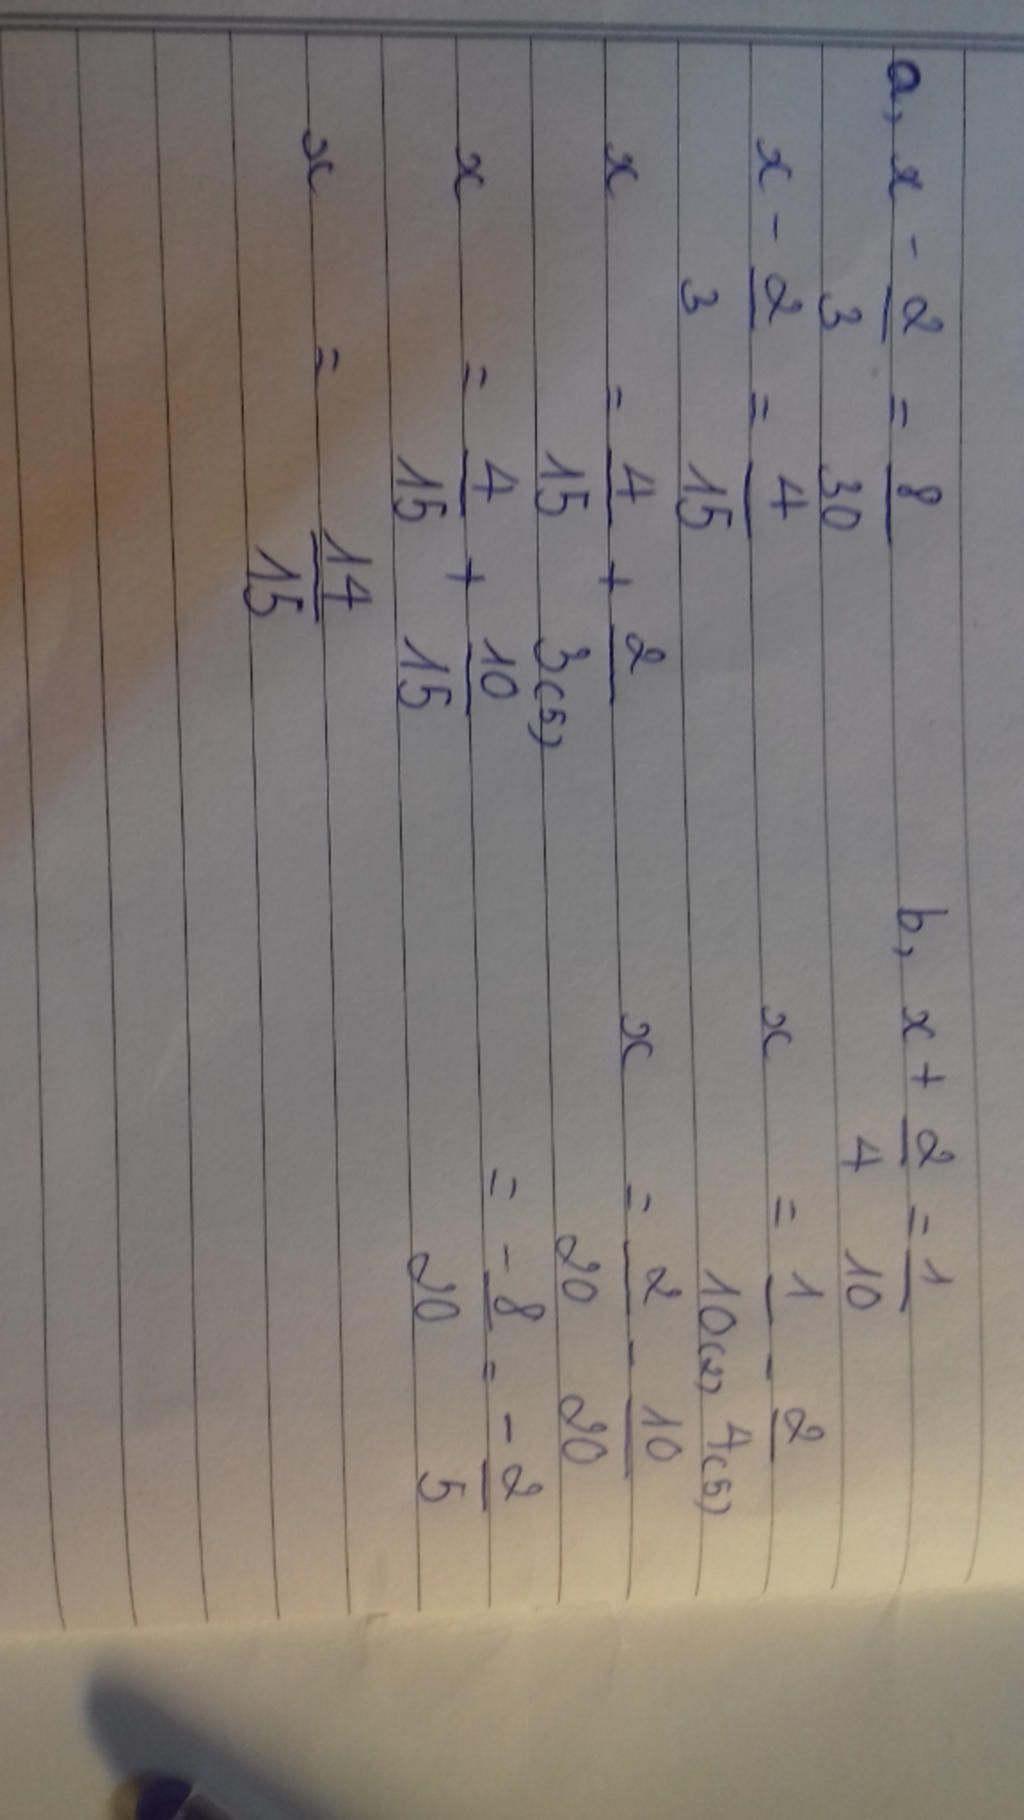 a, x - 2/3 = 8/30
x - 2/3 = 4/15
x = 4/15 + 2/3(5)
x = 4/15 + 10/15
x = 14/15
b, x + 2/4 = 1/10
x = 1/10(2) - 2/4(5)
x = 2/20 - 10/20
= -8/20 = -2/5